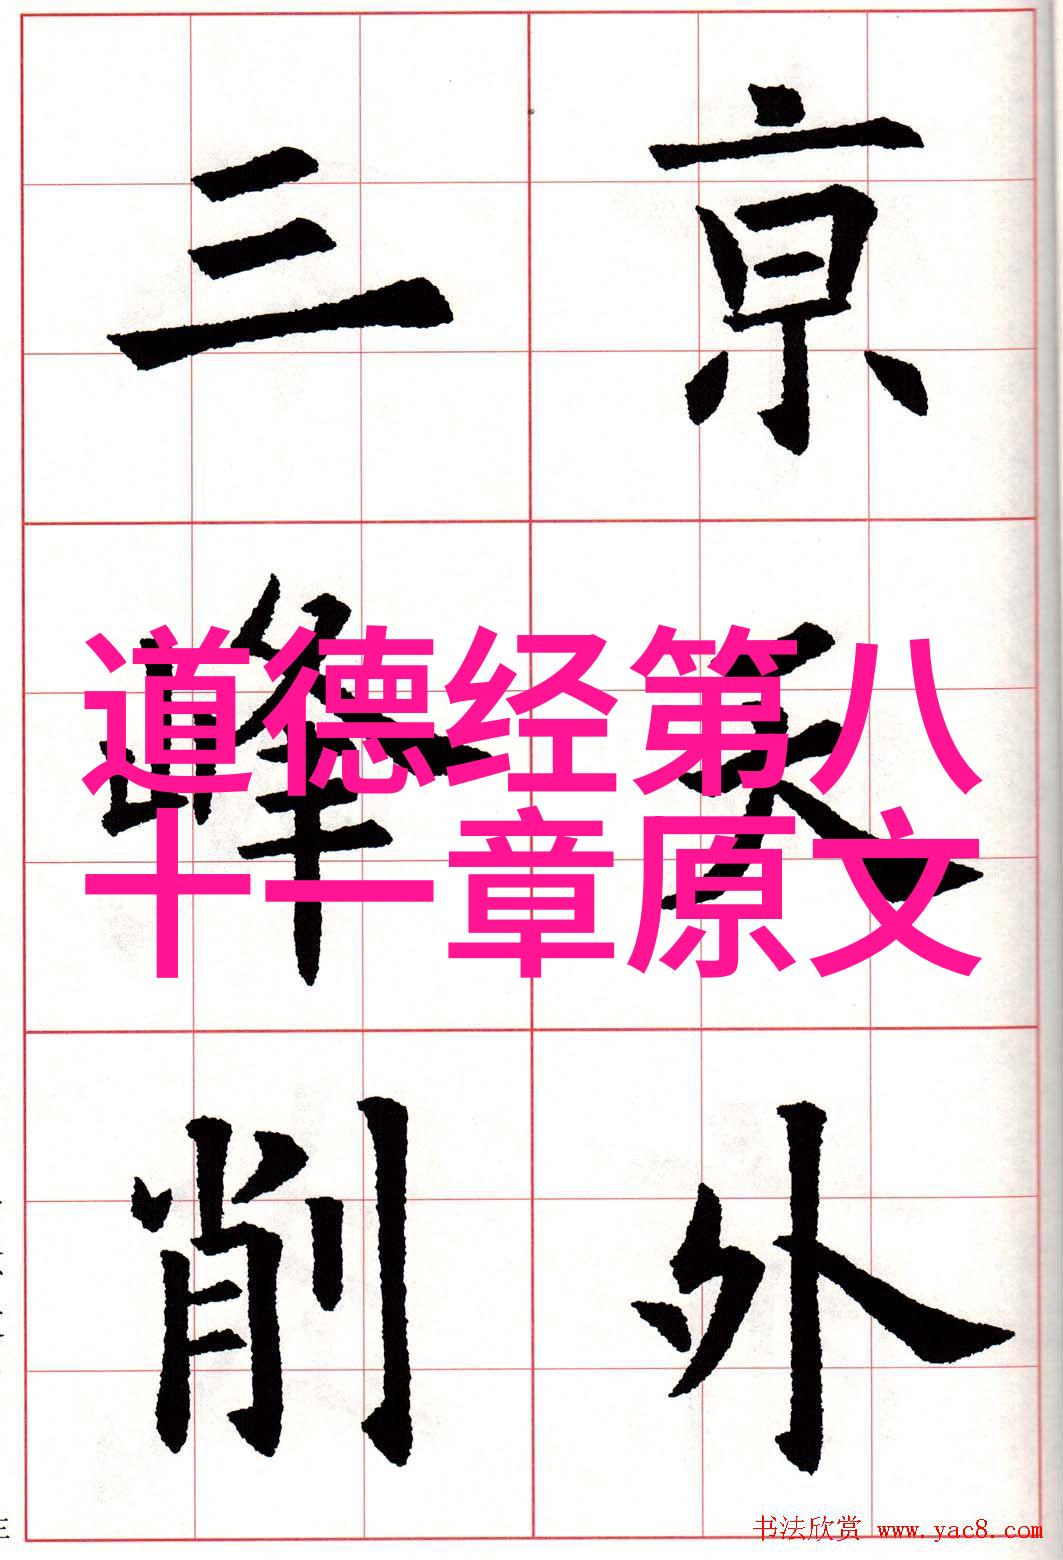 亰天外
三峰削
道德经第八
十一章原文
书法欣赏 www.yac8.com